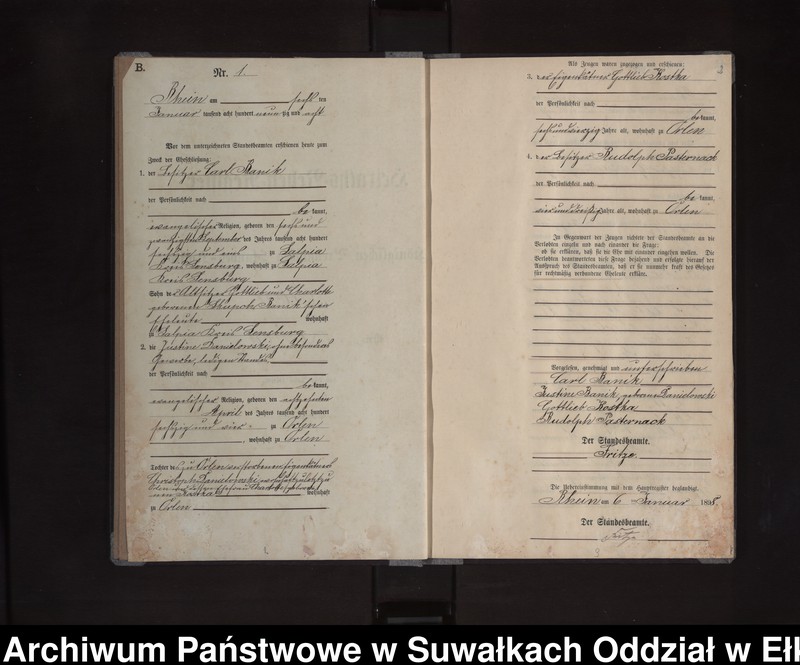 B.
Nr. 1.
Rhein am sechs ten
Januar tausend acht hundert neunzig und acht
Vor dem unterzeichneten Standesbeamten erschienen heute zum
Zweck der Eheschließung:
1. der Besitzer Carl Banik
der Persönlichkeit nach
be kannt,
evangelischer Religion, geboren den sechs und
zwanzigsten September des Jahres tausend acht hundert
sechszig und eins zu Salpia
Kreis Sensburg, wohnhaft zu Salpia
Kreis Sensburg
Sohn des Altsitzer Gottlieb und Charlotte
geborenen Banik'schen
Eheleute wohnhaft
zu Salpia Kreis Sensburg
2. die Justine Danielowski, ohne besonderes
Gewerbe, ledigen Standes
der Persönlichkeit nach
be kannt,
evangelischer Religion, geboren den achtzehnten
April des Jahres tausend acht hundert
sechszig und vier zu Orlen
, wohnhaft zu Orlen
Tochter des zu Orlen verstorbenen Eigenkätners
Christoph Danielowski und
Orlen
Kostka wohnhaft
zu Orlen
2
Als Zeugen waren zugezogen und erschienen:
3. der Eigenkätner Gottlieb Kostka
der Persönlichkeit nach
be kannt,
sechsundvierzig Jahre alt, wohnhaft zu Orlen
4. der Besitzer Rudolph Pasternack
der Persönlichkeit nach
be kannt,
vierunddreißig Jahre alt, wohnhaft zu Orlen
In Gegenwart der Zeugen richtete der Standesbeamte an die
Verlobten einzeln und nach einander die Frage:
ob sie erklären, daß sie die Ehe mit einander eingehen wollen. Die
Verlobten beantworteten diese Frage bejahend und erfolgte hierauf der
Ausspruch des Standesbeamten, daß er sie nunmehr kraft des Gesetzes
für rechtmäßig verbundene Eheleute erkläre.
Vorgelesen, genehmigt und unterschrieben
Carl Banik
Justine Banik, geborene Danielowski
Gottlieb Kostka
Rudolph Pasternack
Der Standesbeamte.
Fritze.
Die Uebereinstimmung mit dem Hauptregister beglaubigt.
Rhein am 6 Januar 1898.
Der Standesbeamte.
Fritze
Archiwum Państwowe w Suwałkach Oddział w Ełk